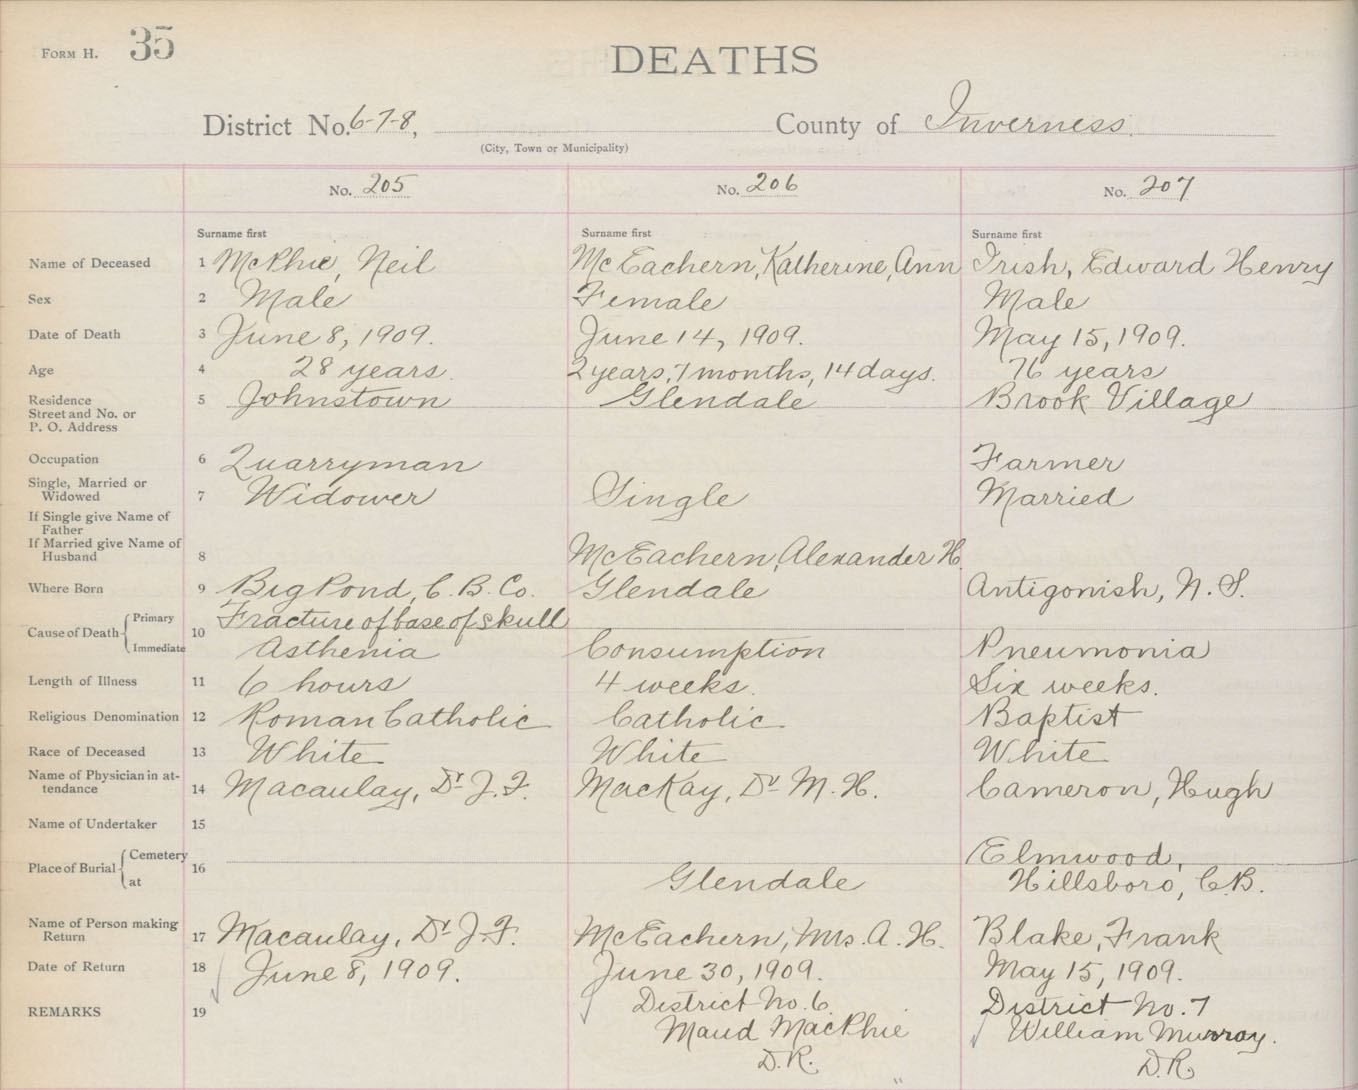 FORM H. 35
DEATHS
District No. 6-7-8, County of Inverness.
(City, Town or Municipality)
No. 205 No. 206 No. 207
Surname first Surname first Surname first
Name of Deceased 1 McPhie, Neil McEachern, Katherine, Ann Irish, Edward Henry
Sex 2 Male Female Male
Date of Death 3 June 8, 1909. June 14, 1909. May 15, 1909.
Age 4 28 years. 2 years, 7 months, 14 days. 76 years
Residence 5 Johnstown Glendale Brook Village
Street and No. or
P. O. Address
Occupation 6 Quarryman Farmer
Single, Married or
Widowed 7 Widower Single Married
If Single give Name of
Father
If Married give Name of
Husband 8 McEachern, Alexander H.
Where Born 9 Big Pond, C. B. Co. Glendale Antigonish, N. S.
Primary Fracture of base of skull
Cause of Death 10
Immediate Asthenia Consumption Pneumonia
Length of Illness 11 6 hours 4 weeks. Six weeks.
Religious Denomination 12 Roman Catholic Catholic Baptist
Race of Deceased 13 White White White
Name of Physician in at-
tendance 14 Macaulay, Dr J. F. MacKay, Dr M. H. Cameron, Hugh
Name of Undertaker 15
Cemetery Elmwood,
Place of Burial 16
at Glendale Hillsboro, C.B.
Name of Person making
Return 17 Macaulay, Dr J. F. McEachern, Mrs. A. H. Blake, Frank
Date of Return 18 June 8, 1909. June 30, 1909. May 15, 1909.
REMARKS 19 District No. 6 District No. 7
Maud MacPhie William Murray.
D.R. D.R